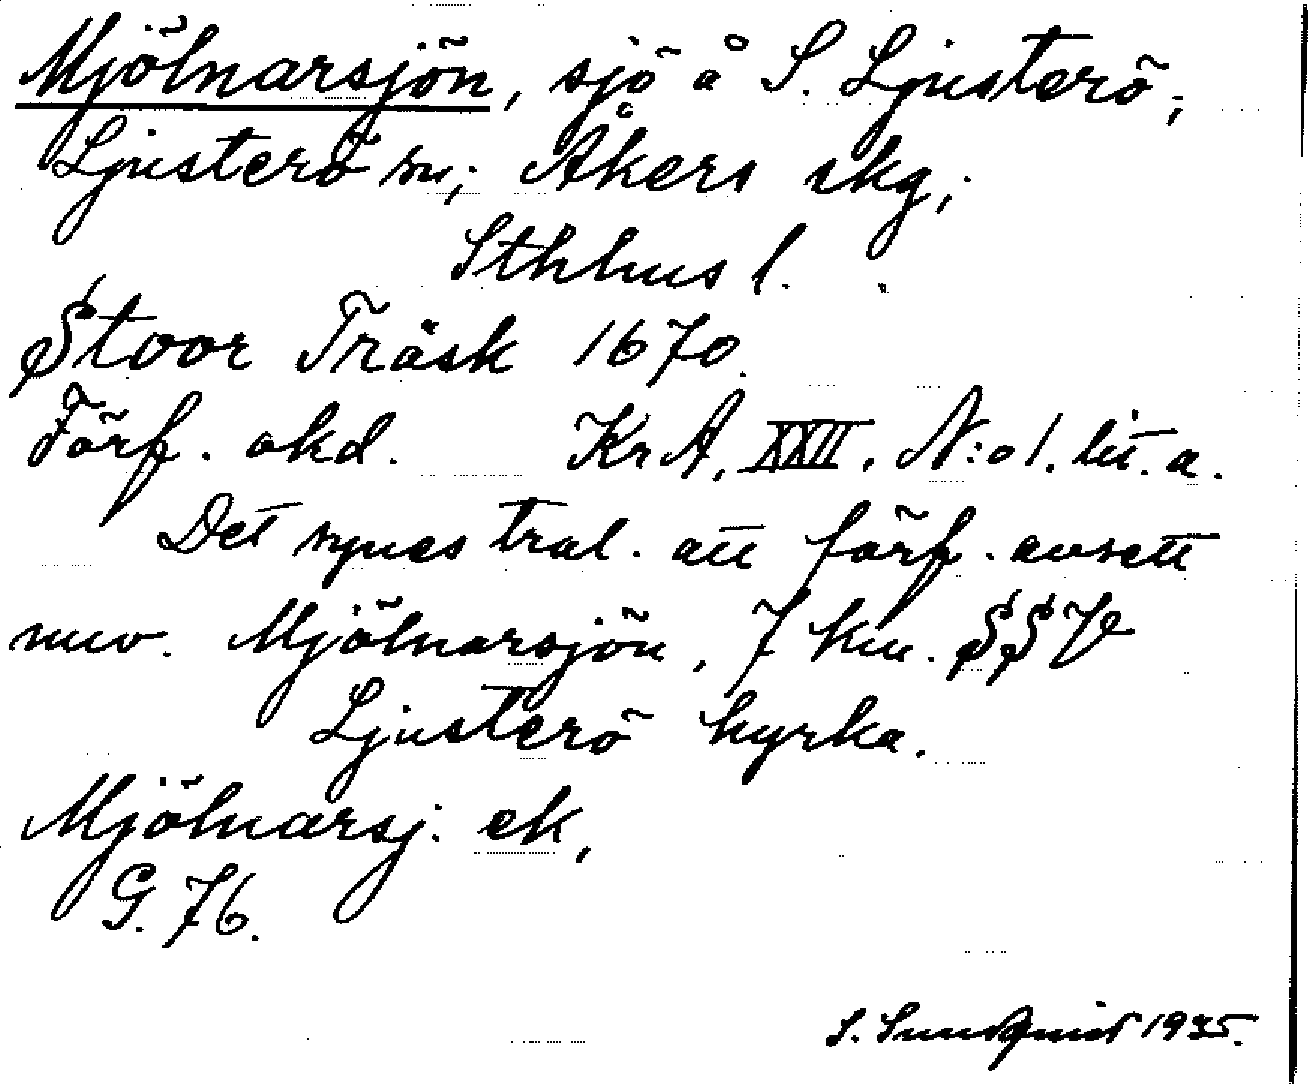 Mjölnarsjön, sjö å S. Ljusterö,
Ljusterö sn; Åkers skg;
Sthlms l.
Stoor Träsk 1670.
Förf. okd. KrA. XXII. N:o 1. lit. a.
Det synes tral. att förf. avsett
nuv. Mjölnarsjön, 7 km. SSV
Ljusterö kyrka.
Mjölnarsj. ek,
G. 76.
S. Sundquist 1935.